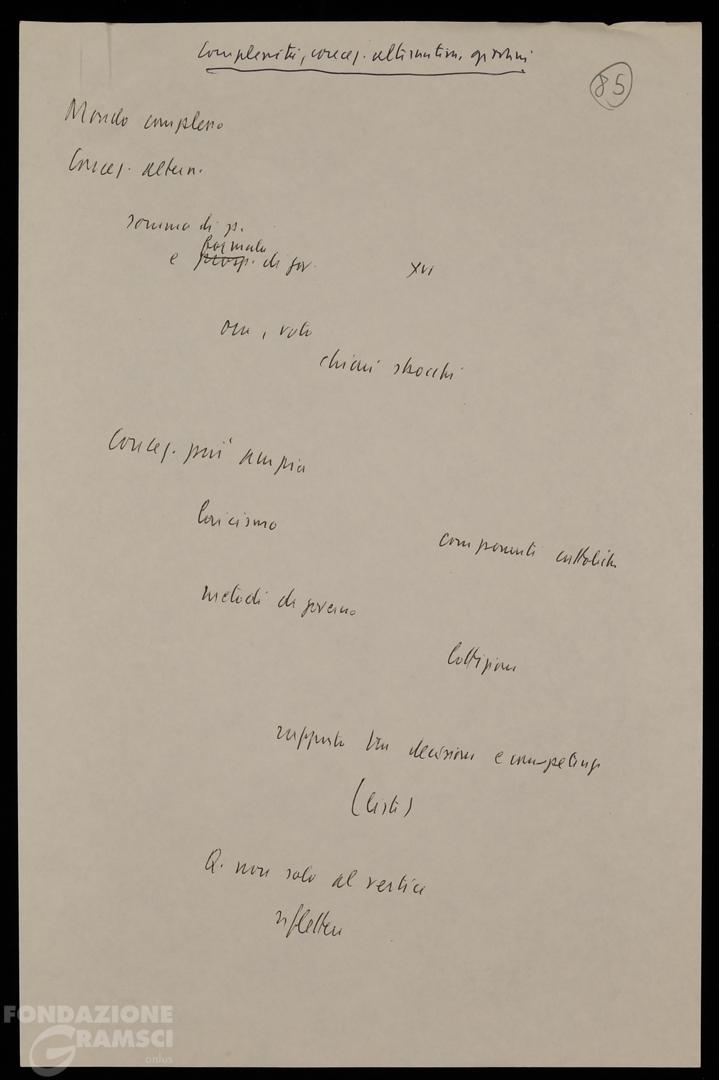 Complessità, conceż. alternativa, questioni
85
Mondo complesso
Concez. altern.
somma di p.
formula
e prosp. di gov.
XVI
ora, voto
chiari sbocchi
Concez. più ampia
laicismo
componenti cattoliche
metodi di governo
Lottizzione
rapporto tra decisioni e competenze
(liste)
Q. non solo al vertice
riflettere
FONDAZIONE
GRAMSCI
onlus